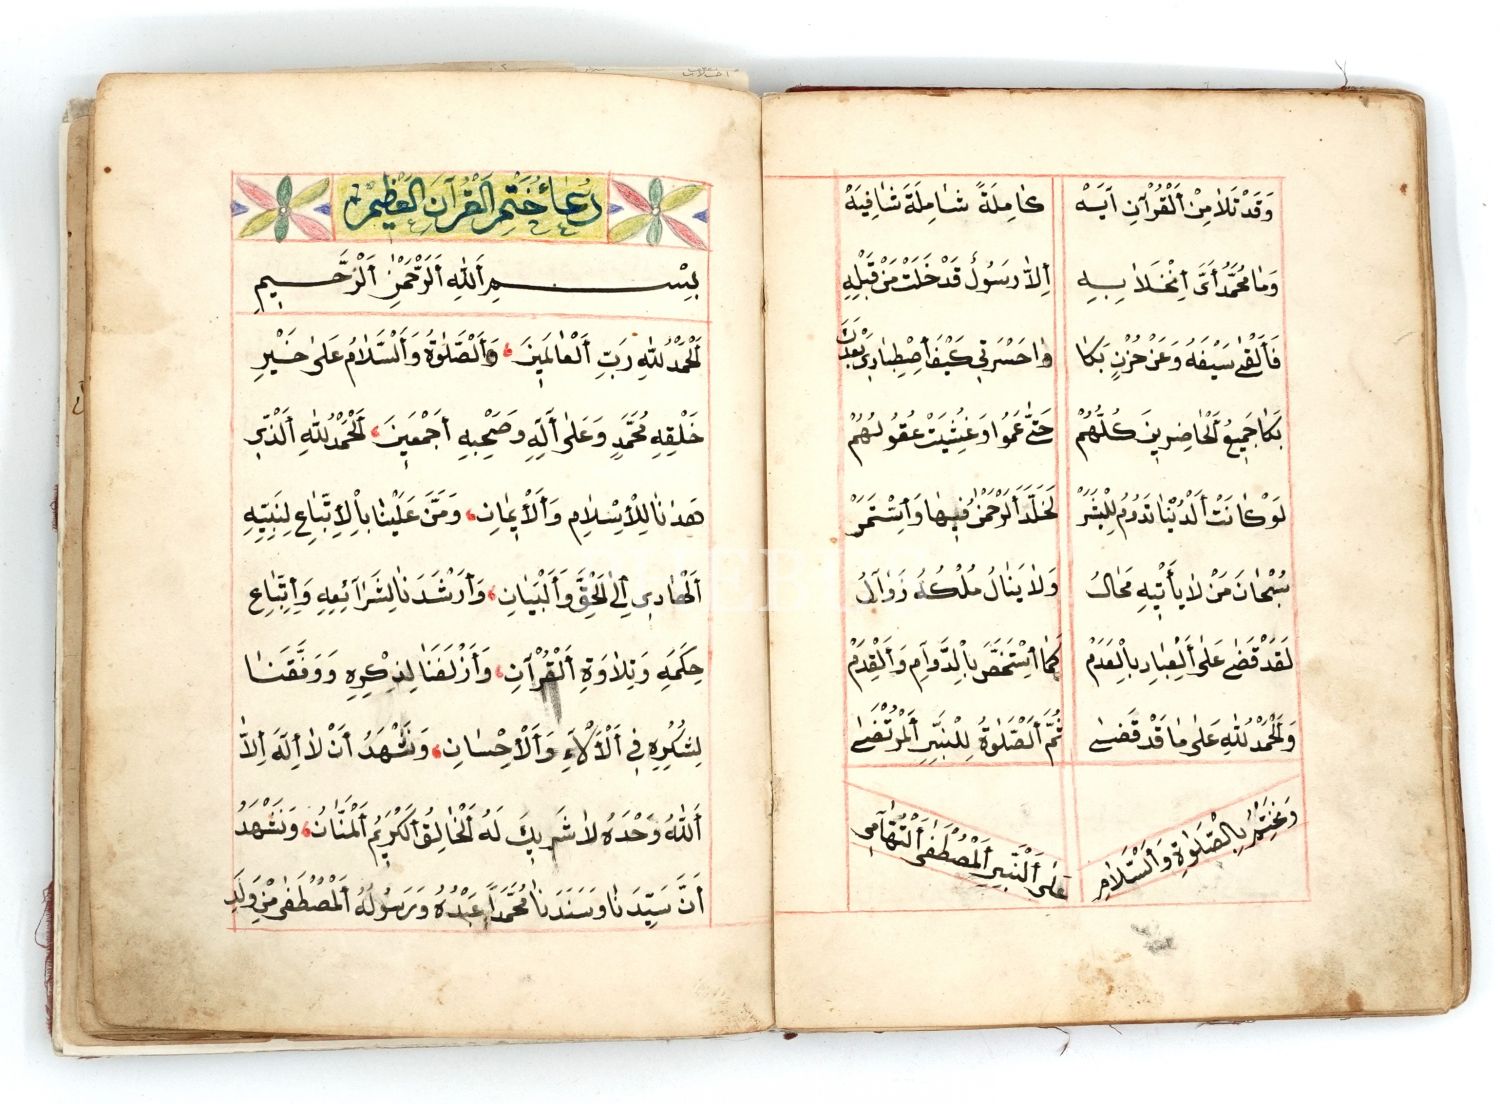 وَقَدْ تَلَا مِنَ ٱلْقُرْآنِ آيَهْ كَامِلَةً شَامِلَةَ شَافِيَهْ
وَمَا مُحَمَّدُ بِهِ إِلَّا رَسُولٌ قَدْ خَلَتْ مَنْ قَبْلِهِ
فَأَلْقٰى سَيْفَهُ وَعَنْ حُزْنٍ بَكَا وَاحَسْرَتِي كَيْفَ ٱصْطِبَارِي بَعْدَكَ
بَكَا جَمِيعُ ٱلْحَاضِرِينَ كُلُّهُمْ حَتَّى عَمُوا وَغُشِيَتْ عُقُولُهُمْ
لَوْ كَانَتْ ٱلدُّنْيَا تَدُومُ لِلْبَشَرْ لَخَلَّدَ ٱلرَّحْمٰنُ فِيهَا وَٱسْتَمَرْ
سُبْحَانَ مَنْ لَا يَأْتِيهِ مَحَالُ وَلَا يَنَالُ مُلْكَهُ زَوَالُ
لَقَدْ قَضٰى عَلَى ٱلْعِبَادِ بِٱلْعَدَمْ كَمَا ٱسْتَخَصَّ بِٱلدَّوَامِ وَٱلْقِدَمْ
وَٱلْحَمْدُ لِلّٰهِ عَلَى مَا قَدْ قَضٰى ثُمَّ ٱلصَّلٰوةُ لِلنَّبِيِّ ٱلْمُرْتَضٰى
وَنَخْتِمُ بِالصَّلٰوةِ وَٱلسَّلَامِ عَلَى ٱلنَّبِيِّ ٱلْمُصْطَفٰى ٱلتُّهَامِي
دُعَاءُ خَتْمِ الْقُرْآنِ الْعَظِيمِ
بِسْمِ ٱللّٰهِ ٱلرَّحْمٰنِ ٱلرَّحِيمِ
ٱلْحَمْدُ لِلّٰهِ رَبِّ ٱلْعَالَمِينَ، وَٱلصَّلٰوةُ وَٱلسَّلَامُ عَلَى خَيْرِ
خَلْقِهِ مُحَمَّدٍ وَعَلَى آلِهِ وَصَحْبِهِ أَجْمَعِينَ، ٱلْحَمْدُ لِلّٰهِ ٱلَّذِي
هَدٰنَا لِلْإِسْلَامِ وَٱلْإِيمَانِ، وَمَنَّ عَلَيْنَا بِٱلْإِتِّبَاعِ لِنَبِيِّهِ
ٱلْهَادِي إِلَى ٱلْحَقِّ وَٱلْبَيَانِ، وَأَرْشَدَنَا لِشَرَآئِعِهِ وَإِتِّبَاعِ
حِكَمِهِ وَتِلَاوَةِ ٱلْقُرْآنِ، وَأَزْلَفَنَا لِذِكْرِهِ وَوَفَّقَنَا
لِشُكْرِهِ فِي ٱلْآلَاءِ وَٱلْإِحْسَانِ، وَنَشْهَدُ أَنْ لَا إِلَهَ إِلَّا
ٱللّٰهُ وَحْدَهُ لَا شَرِيكَ لَهُ ٱلْخَالِقُ ٱلْكَرِيمُ ٱلْمَنَّانُ، وَنَشْهَدُ
أَنَّ سَيِّدَنَا وَسَنَدَنَا مُحَمَّدًا عَبْدُهُ وَرَسُولُهُ ٱلْمُصْطَفٰى مِنْ وَلَدِ